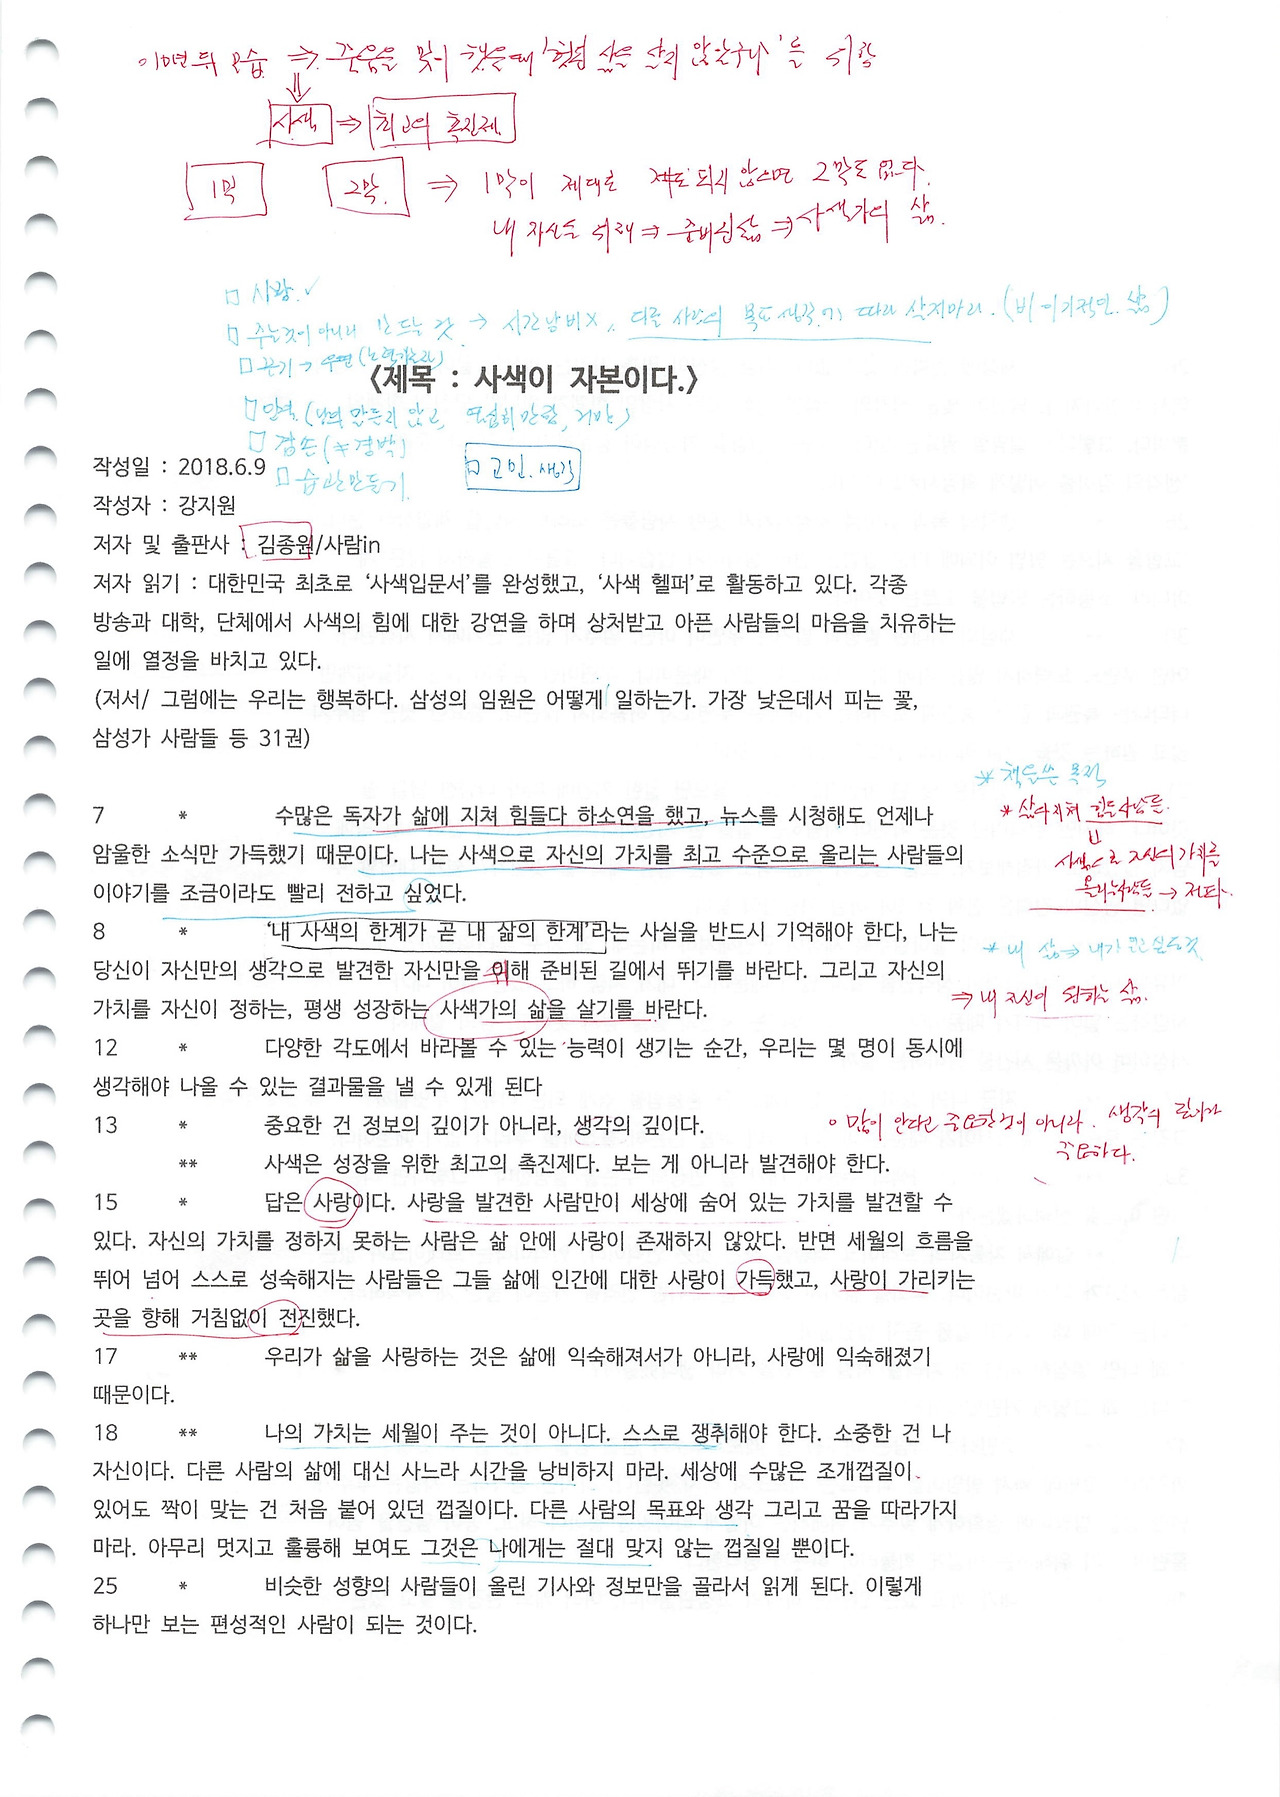 10년 뒤 모습 ⇒ 죽음을 맞이 했을때 '헛된 삶을 살지 않았구나'를 위함
⇓
사색 ⇒ 최고의 촉진제
1막 2막 ⇒ 1막이 제대로 되지 않으면 2막도 없다.
내 자신을 위해 ⇒ 준비된 삶 ⇒ 사색가의 삶
□ 사랑 ✓
□ 주는것이 아니라 만드는 것 → 시간낭비X, 다른 사람의 목표 생각 따라 살지마라. (비 이기적인 삶)
□ 끈기 →
<제목 : 사색이 자본이다.>
□ 겸손(≠경박)
□ 습관만들기
□ 고민. 생각
작성일 : 2018.6.9
작성자 : 강지원
저자 및 출판사 : 김종원/사람in
저자 읽기 : 대한민국 최초로 '사색입문서'를 완성했고, '사색 헬퍼'로 활동하고 있다. 각종
방송과 대학, 단체에서 사색의 힘에 대한 강연을 하며 상처받고 아픈 사람들의 마음을 치유하는
일에 열정을 바치고 있다.
(저서/ 그럼에는 우리는 행복하다. 삼성의 임원은 어떻게 일하는가. 가장 낮은데서 피는 꽃,
삼성가 사람들 등 31권)
* 책을쓴 목적
7 * 수많은 독자가 삶에 지쳐 힘들다 하소연을 했고, 뉴스를 시청해도 언제나
* 삶에지쳐 힘든사람들
암울한 소식만 가득했기 때문이다. 나는 사색으로 자신의 가치를 최고 수준으로 올리는 사람들의
사색으로 자신의 가치를
이야기를 조금이라도 빨리 전하고 싶었다.
올리는사람들 → 전파.
8 * '내 사색의 한계가 곧 내 삶의 한계'라는 사실을 반드시 기억해야 한다, 나는
* 내 삶 ⇒ 내가 만드는것
당신이 자신만의 생각으로 발견한 자신만을 위해 준비된 길에서 뛰기를 바란다. 그리고 자신의
⇒ 내 자신이 원하는 삶.
가치를 자신이 정하는, 평생 성장하는 사색가의 삶을 살기를 바란다.
12 * 다양한 각도에서 바라볼 수 있는 능력이 생기는 순간, 우리는 몇 명이 동시에
생각해야 나올 수 있는 결과물을 낼 수 있게 된다
13 * 중요한 건 정보의 깊이가 아니라, 생각의 깊이다.
○ 많이 안다고 중요한것이 아니라. 생각의 깊이가
중요하다.
** 사색은 성장을 위한 최고의 촉진제다. 보는 게 아니라 발견해야 한다.
15 * 답은 사랑이다. 사랑을 발견한 사람만이 세상에 숨어 있는 가치를 발견할 수
있다. 자신의 가치를 정하지 못하는 사람은 삶 안에 사랑이 존재하지 않았다. 반면 세월의 흐름을
뛰어 넘어 스스로 성숙해지는 사람들은 그들 삶에 인간에 대한 사랑이 가득했고, 사랑이 가리키는
곳을 향해 거침없이 전진했다.
17 ** 우리가 삶을 사랑하는 것은 삶에 익숙해져서가 아니라, 사랑에 익숙해졌기
때문이다.
18 ** 나의 가치는 세월이 주는 것이 아니다. 스스로 쟁취해야 한다. 소중한 건 나
자신이다. 다른 사람의 삶에 대신 사느라 시간을 낭비하지 마라. 세상에 수많은 조개껍질이
있어도 짝이 맞는 건 처음 붙어 있던 껍질이다. 다른 사람의 목표와 생각 그리고 꿈을 따라가지
마라. 아무리 멋지고 훌륭해 보여도 그것은 나에게는 절대 맞지 않는 껍질일 뿐이다.
25 * 비슷한 성향의 사람들이 올린 기사와 정보만을 골라서 읽게 된다. 이렇게
하나만 보는 편성적인 사람이 되는 것이다.